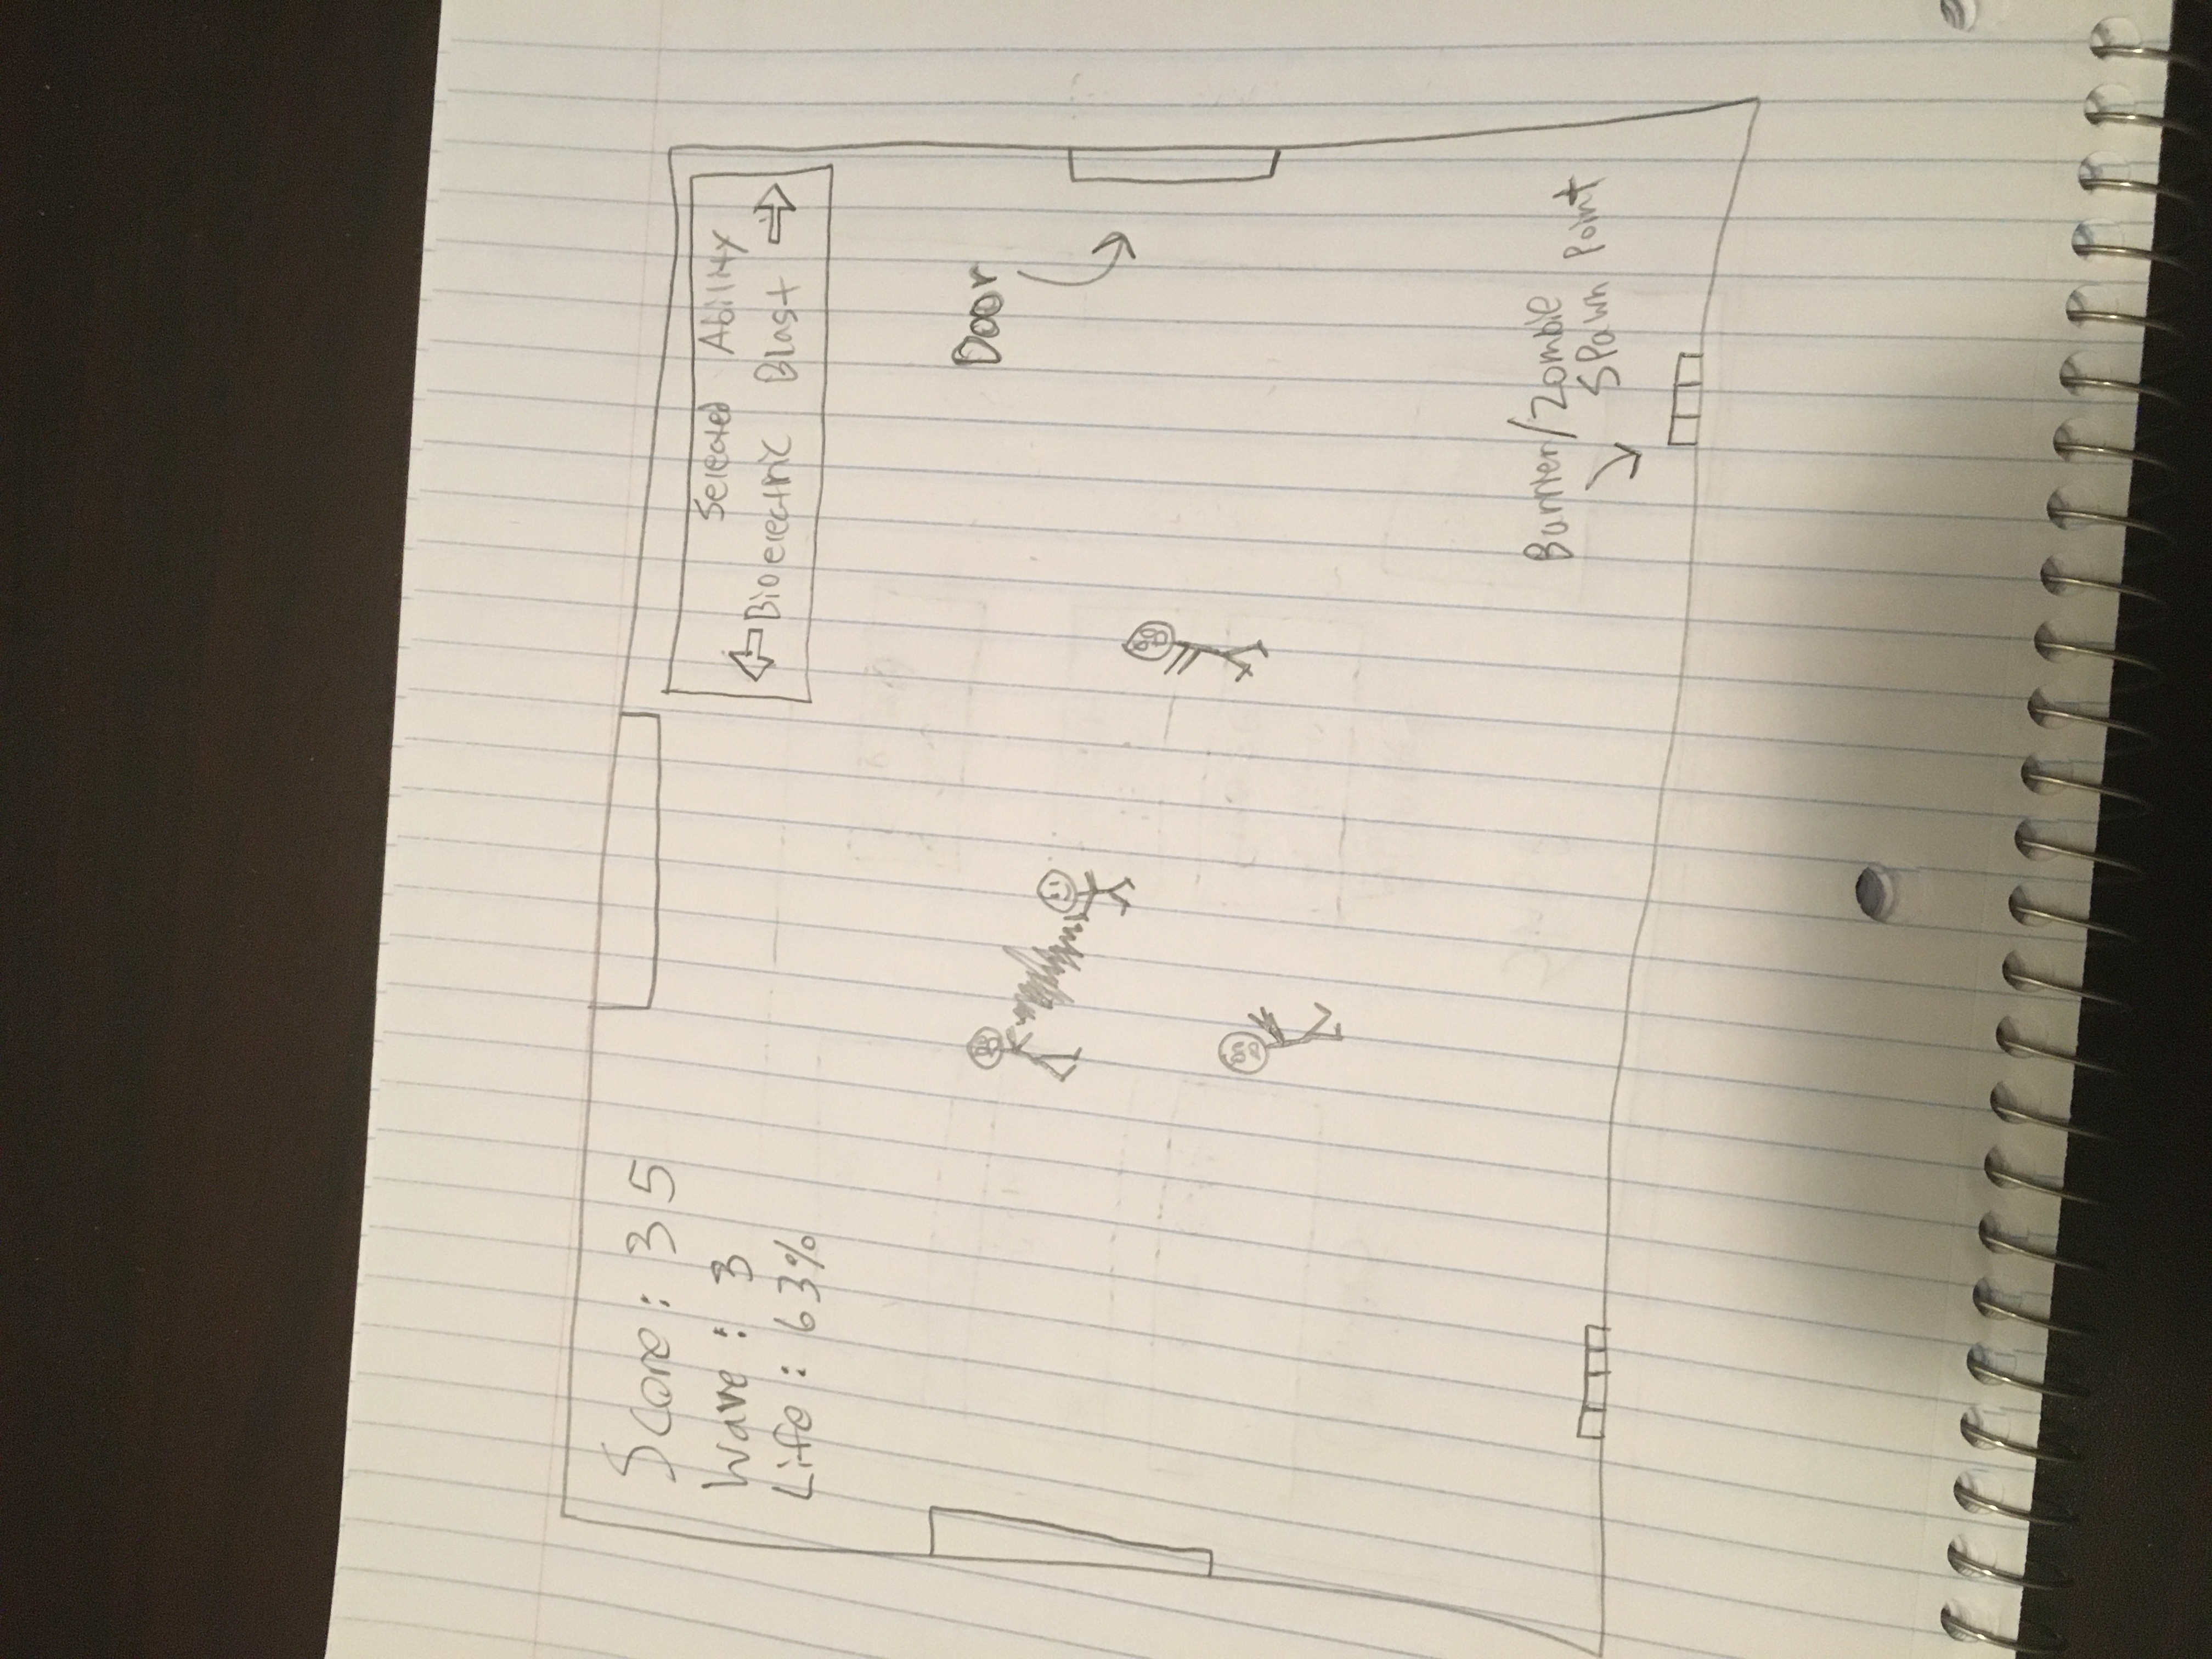 Score: 35
Wave: 3
Life: 63%
Selected Ability
Bioelectric Blast
Door
Barrier/Zombie
Spawn Point